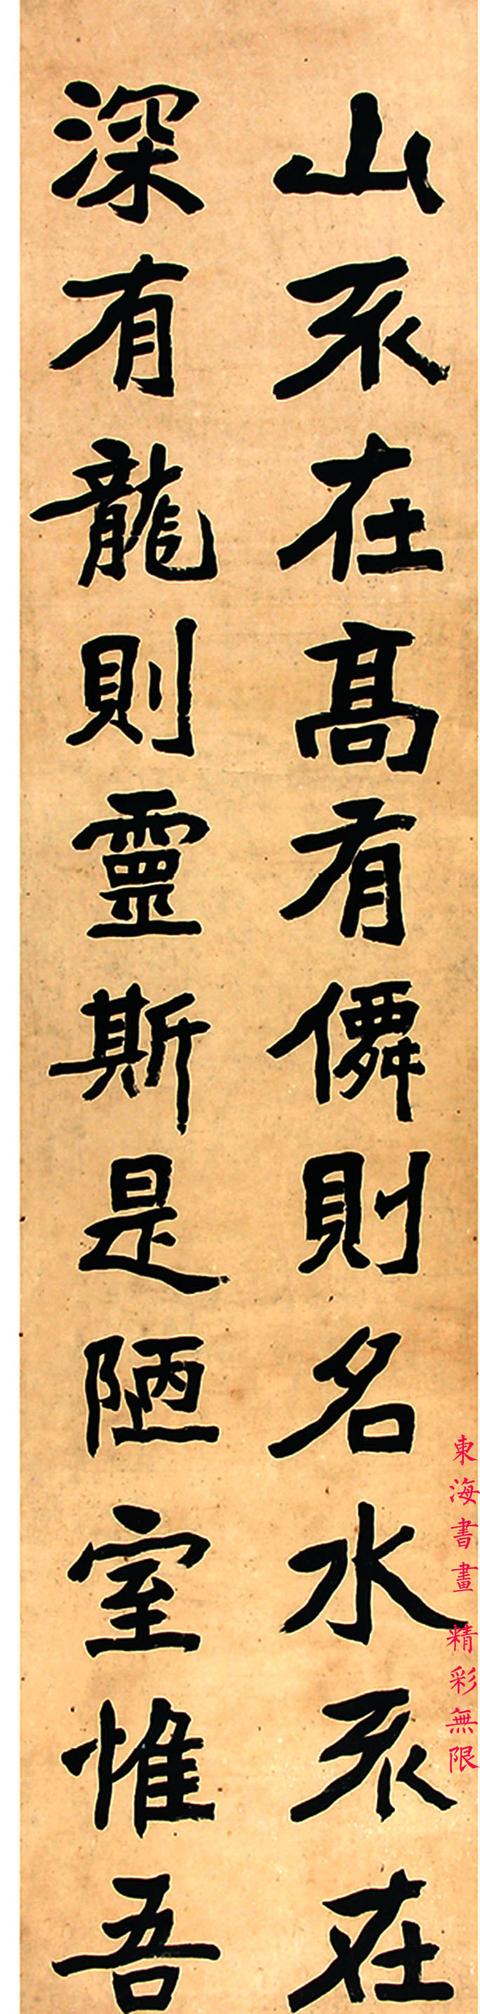 山不在高有僊則名水不在
深有龍則靈斯是陋室惟吾
東海書畫 精彩無限